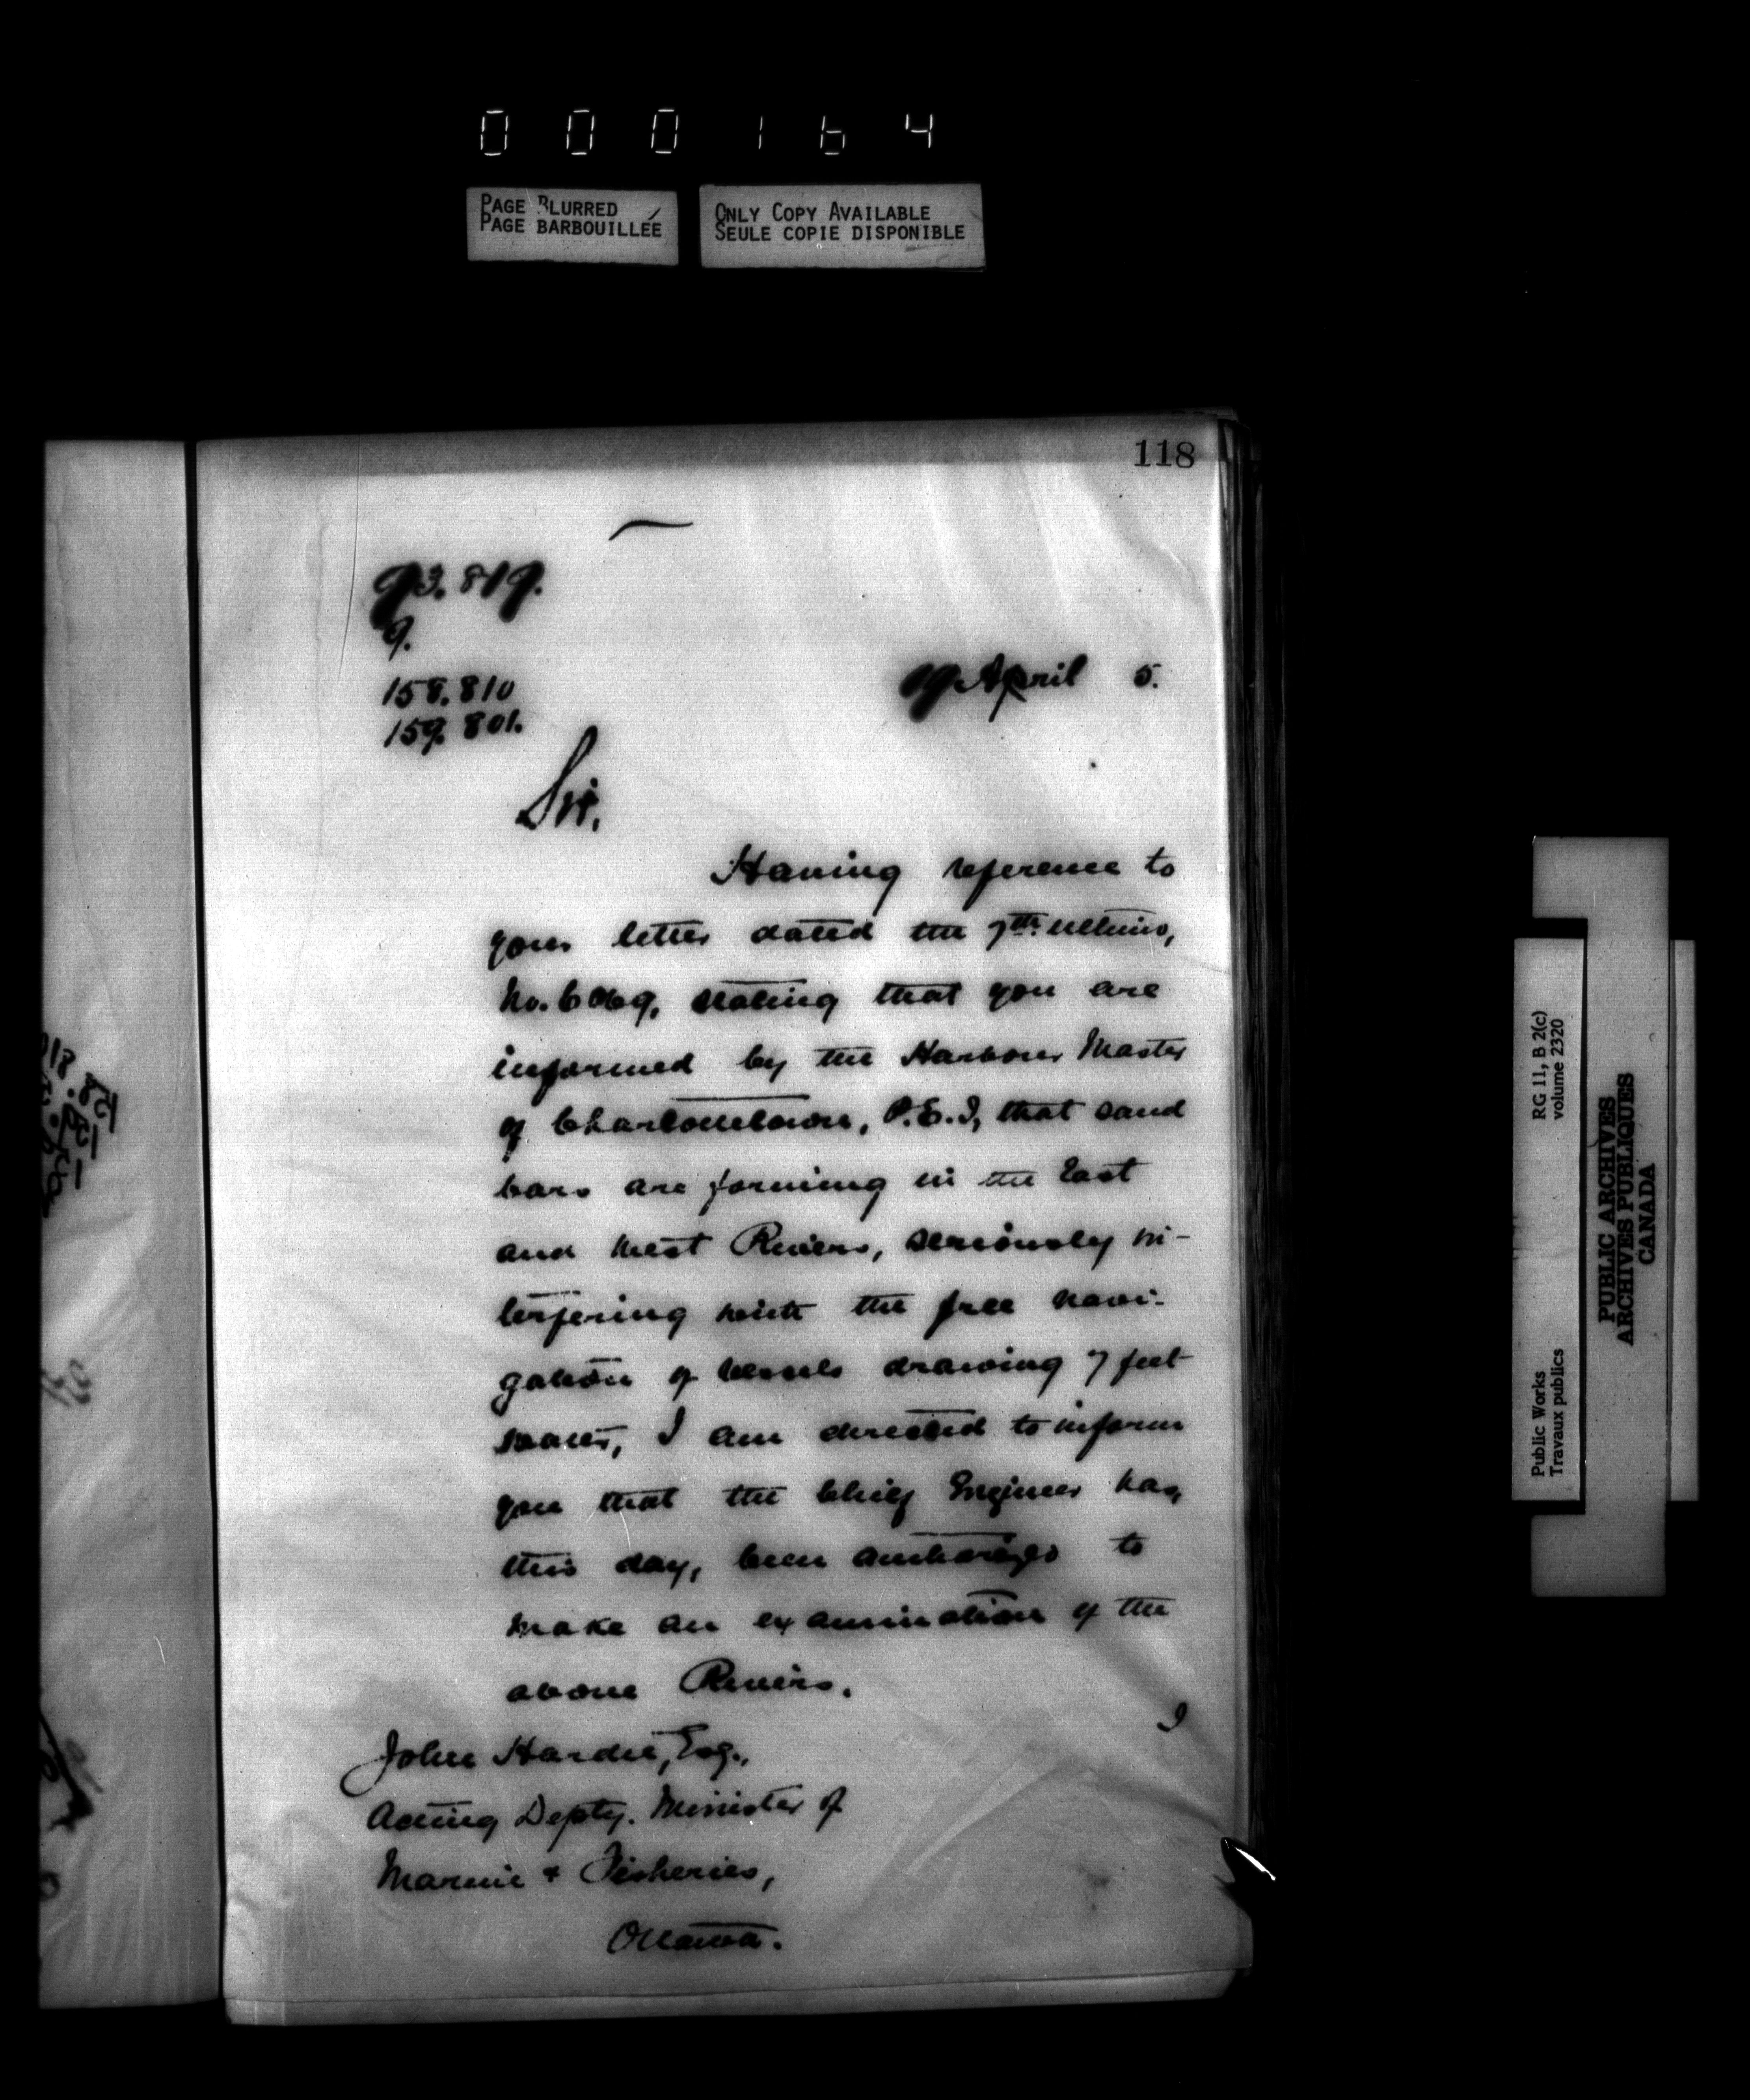 000164
PAGE BLURRED
PAGE BARBOUILLÉE
ONLY COPY AVAILABLE
SEULE COPIE DISPONIBLE
118
93.819.
9.
158.810
159.801.
19 April 5.
Sir,
Having reference to
your letter dated the 7th. ultimo,
No. stating that you are
informed by the Harbour Master
of Charlottetown, P.E.I, that sand
bars are forming in the East
and West Rivers, seriously in-
terfering with the free navi-
gation of vessels drawing 7 feet
water, I am directed to inform
you that the Chief Engineer has,
this day, been authorized to
make an examination of the
above Rivers.
I
John Hardie, Esq.,
Acting Depty. Minister of
Marine & Fisheries,
Ottawa.
RG 11, B 2(c)
volume 2320
Public Works
Travaux publics
PUBLIC ARCHIVES
ARCHIVES PUBLIQUES
CANADA